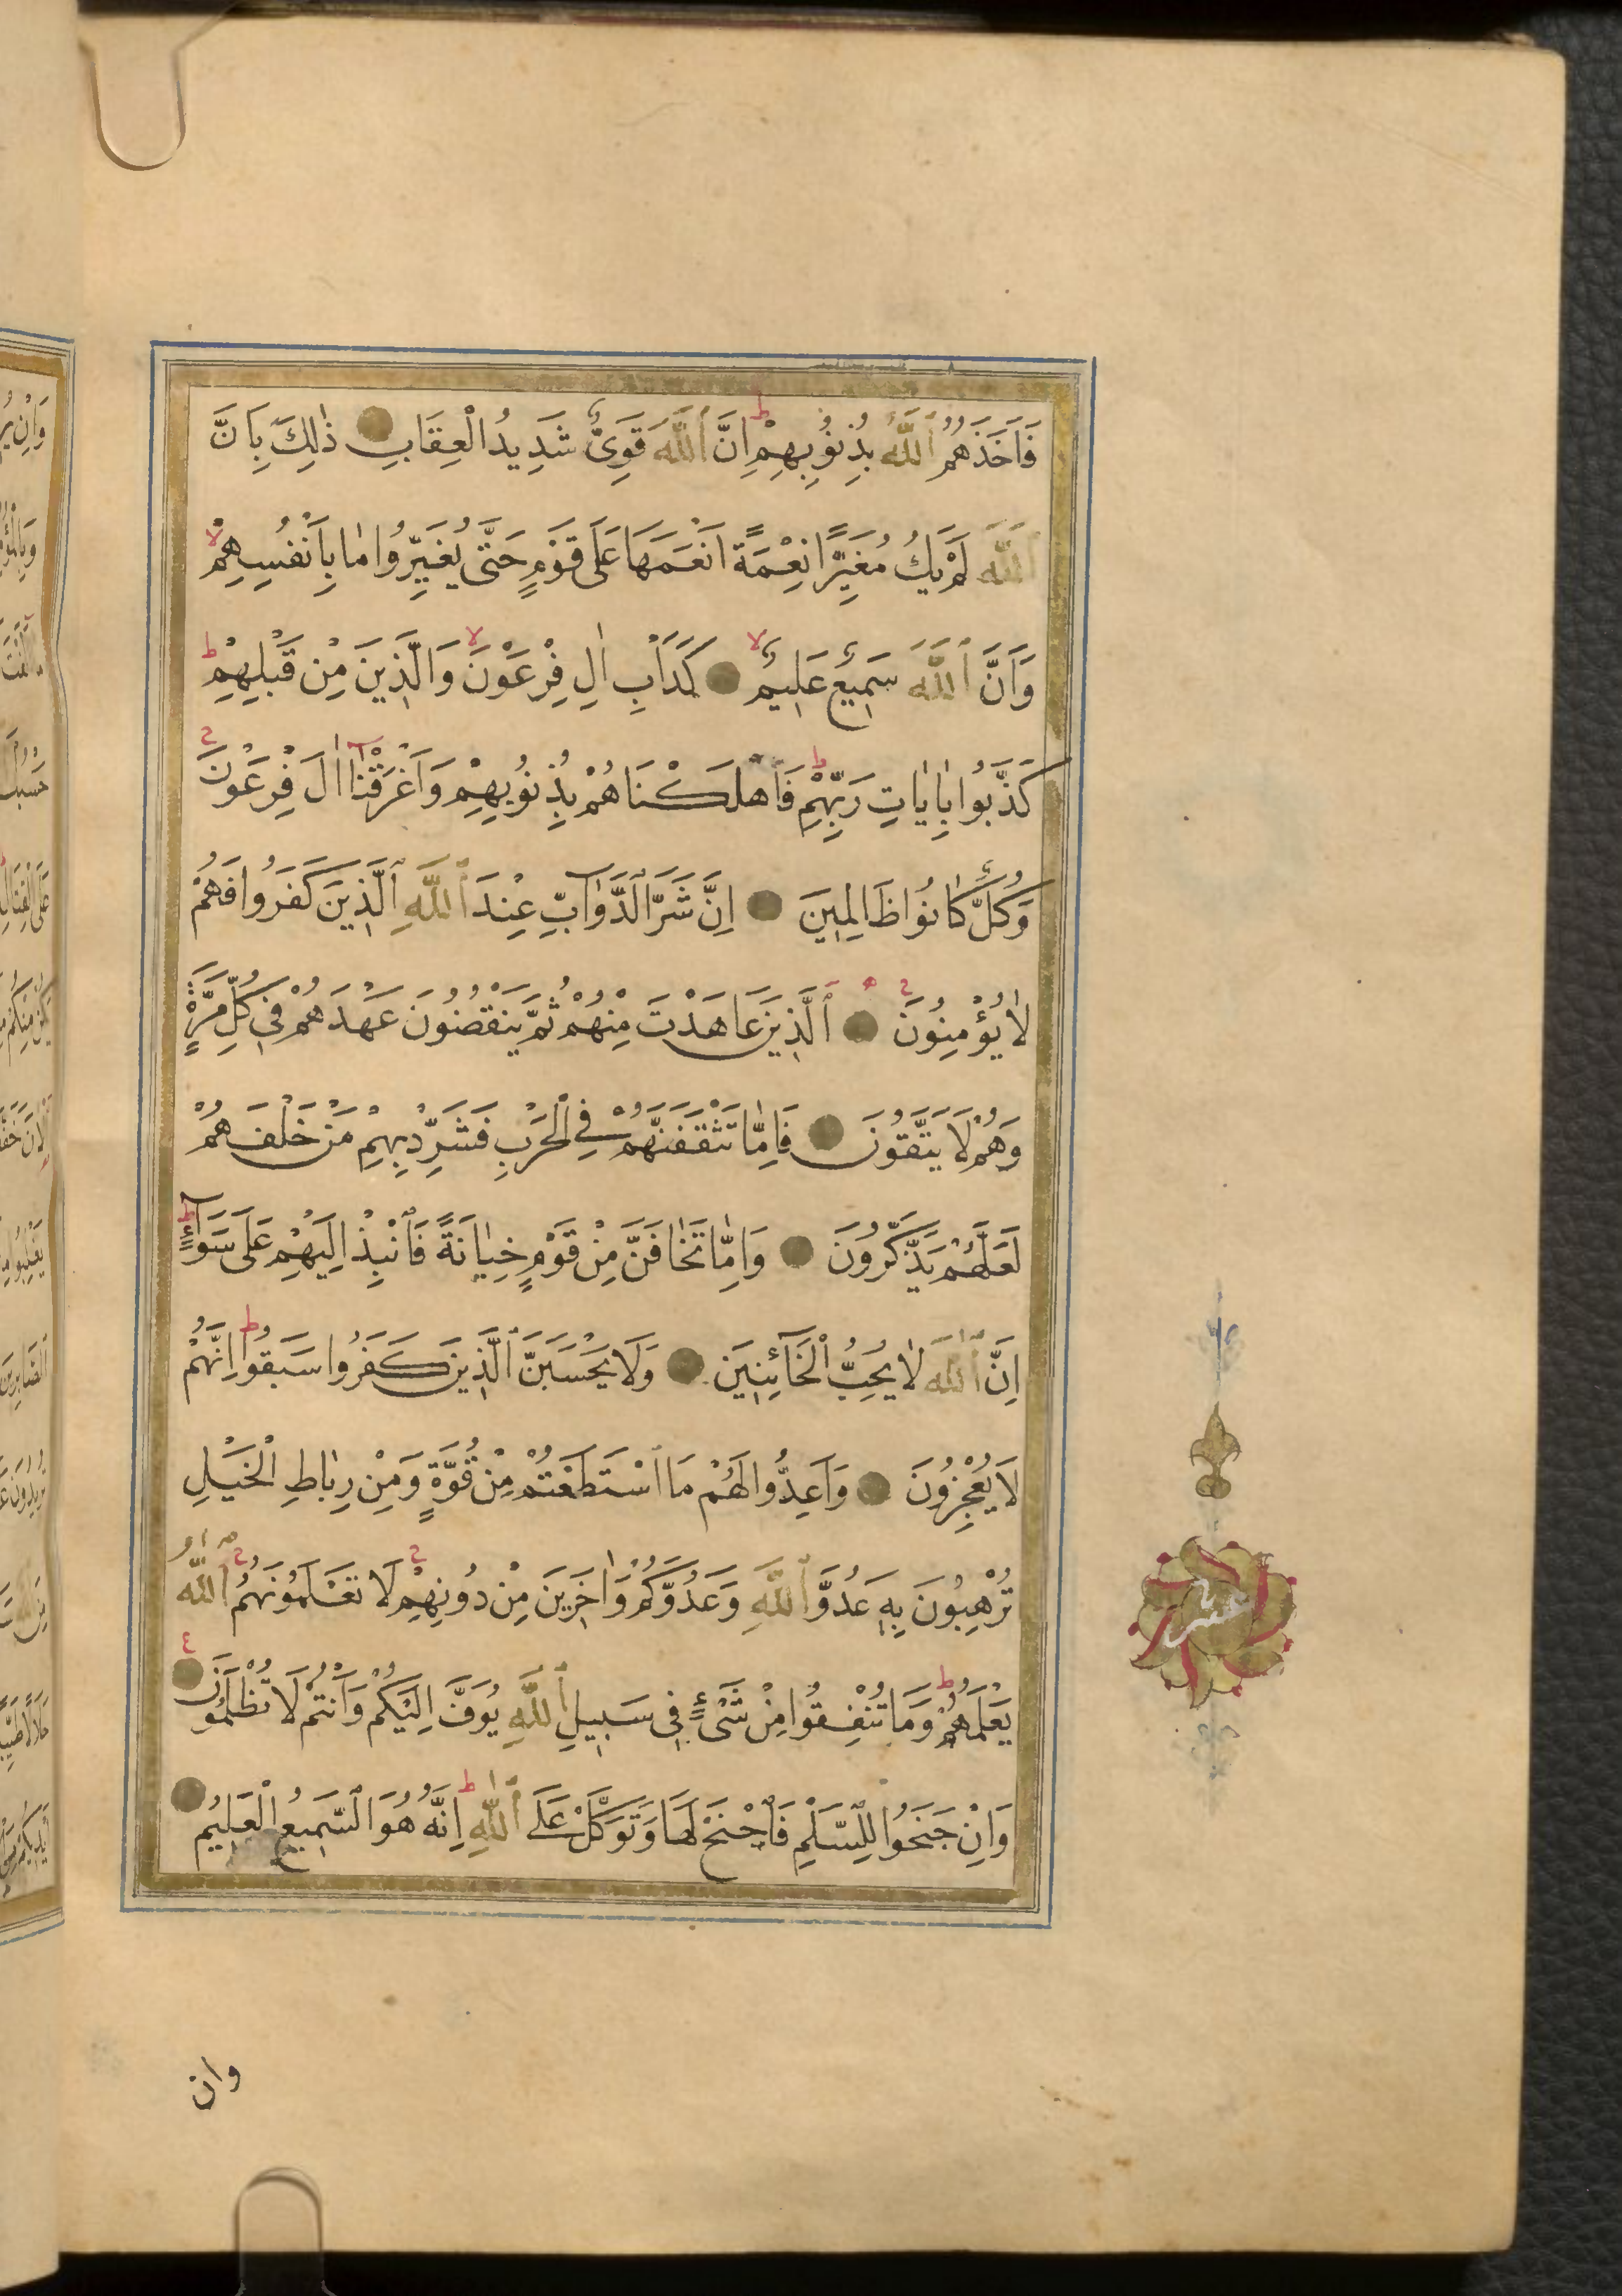 فَاَخَذَهُمُ اللّٰهُ بِذُنُوبِهِمْ ط اِنَّ اللّٰهَ قَوِىٌّ شَدِيدُ الْعِقَابِ ذٰلِكَ بِاَنَّ
اللّٰهَ لَمْ يَكُ مُغَيِّرًا نِعْمَةً اَنْعَمَهَا عَلٰى قَوْمٍ حَتّٰى يُغَيِّرُوا مٰا بِاَنْفُسِهِمْ لا
وَاَنَّ اللّٰهَ سَمِيعٌ عَلِيمٌ لا كَدَاْبِ اٰلِ فِرْعَوْنَ لا وَالَّذِينَ مِنْ قَبْلِهِمْ ط
كَذَّبُوا بِاٰيٰاتِ رَبِّهِمْ ط فَاَهْلَكْنَاهُمْ بِذُنُوبِهِمْ وَاَغْرَقْنَآ اٰلَ فِرْعَوْنَ ح
وَكُلٌّ كٰانُوا ظَالِمِينَ اِنَّ شَرَّ الدَّوَآبِّ عِنْدَ اللّٰهِ الَّذِينَ كَفَرُوا فَهُمْ
لٰا يُؤْمِنُونَ ح اَلَّذِينَ عَاهَدْتَ مِنْهُمْ ثُمَّ يَنْقُضُونَ عَهْدَهُمْ فِى كُلِّ مَرَّةٍ
وَهُمْ لَا يَتَّقُونَ فَاِمّٰا تَثْقَفَنَّهُمْ فِى الْحَرْبِ فَشَرِّدْ بِهِمْ مَنْ خَلْفَهُمْ
لَعَلَّهُمْ يَذَّكَّرُونَ وَاِمّٰا تَخٰافَنَّ مِنْ قَوْمٍ خِيٰانَةً فَانْبِذْ اِلَيْهِمْ عَلٰى سَوَآءٍ ط
اِنَّ اللّٰهَ لٰا يُحِبُّ الْخَآئِنِينَ وَلَا يَحْسَبَنَّ الَّذِينَ كَفَرُوا سَبَقُوا ط اِنَّهُمْ
لَا يُعْجِزُونَ وَاَعِدُّوا لَهُمْ مَا اسْتَطَعْتُمْ مِنْ قُوَّةٍ وَمِنْ رِبٰاطِ الْخَيْلِ
تُرْهِبُونَ بِهِ عَدُوَّ اللّٰهِ وَعَدُوَّكُمْ وَاٰخَرِينَ مِنْ دُونِهِمْ ح لَا تَعْلَمُونَهُمُ ح اللّٰهُ
يَعْلَمُهُمْ ط وَمَا تُنْفِقُوا مِنْ شَىْءٍ فِى سَبِيلِ اللّٰهِ يُوَفَّ اِلَيْكُمْ وَاَنْتُمْ لَا تُظْلَمُونَ ع
وَاِنْ جَنَحُوا لِلسَّلْمِ فَاجْنَحْ لَهَا وَتَوَكَّلْ عَلَى اللّٰهِ ط اِنَّهُ هُوَ السَّمِيعُ الْعَلِيمُ
عشر
وان